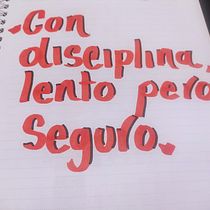 Con
disciplina,
lento pero
Seguro.